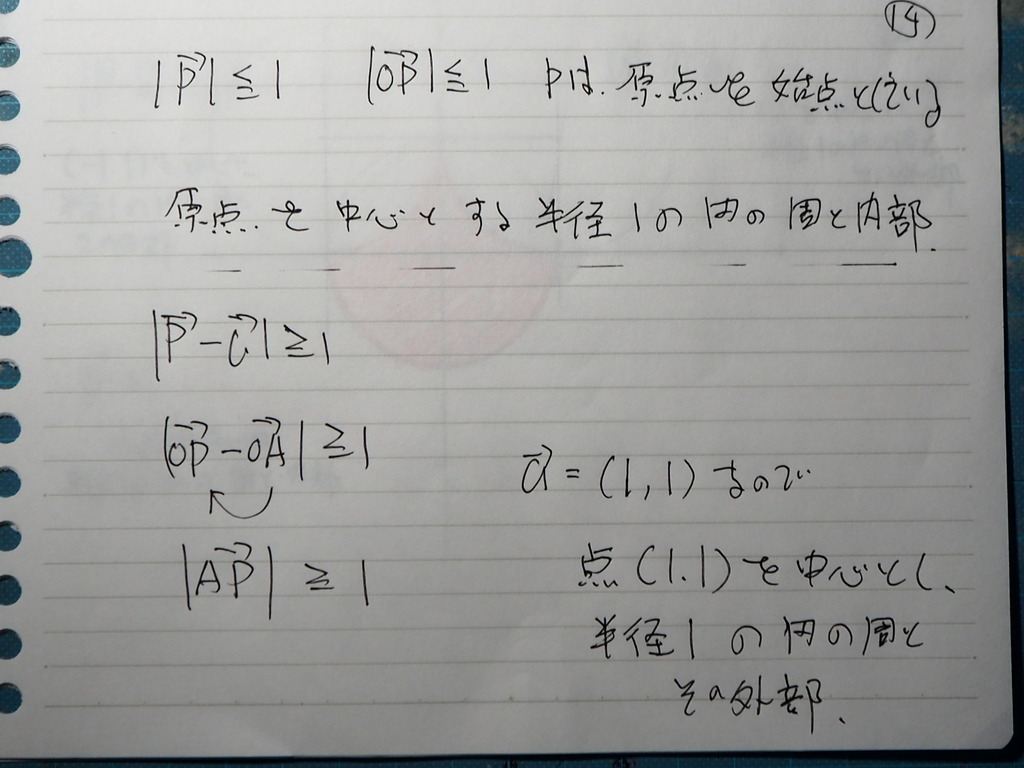 ⑭
|p⃗| ≦ 1 |OP⃗| ≦ 1 Pは、原点を始点としている
原点を中心とする半径1の円の周と内部.
|p⃗ - a⃗| ≧ 1
|OP⃗ - OA⃗| ≧ 1
a⃗ = (1, 1) なので
|AP⃗| ≧ 1
点(1.1)を中心とし、
半径1の円の周と
その外部、